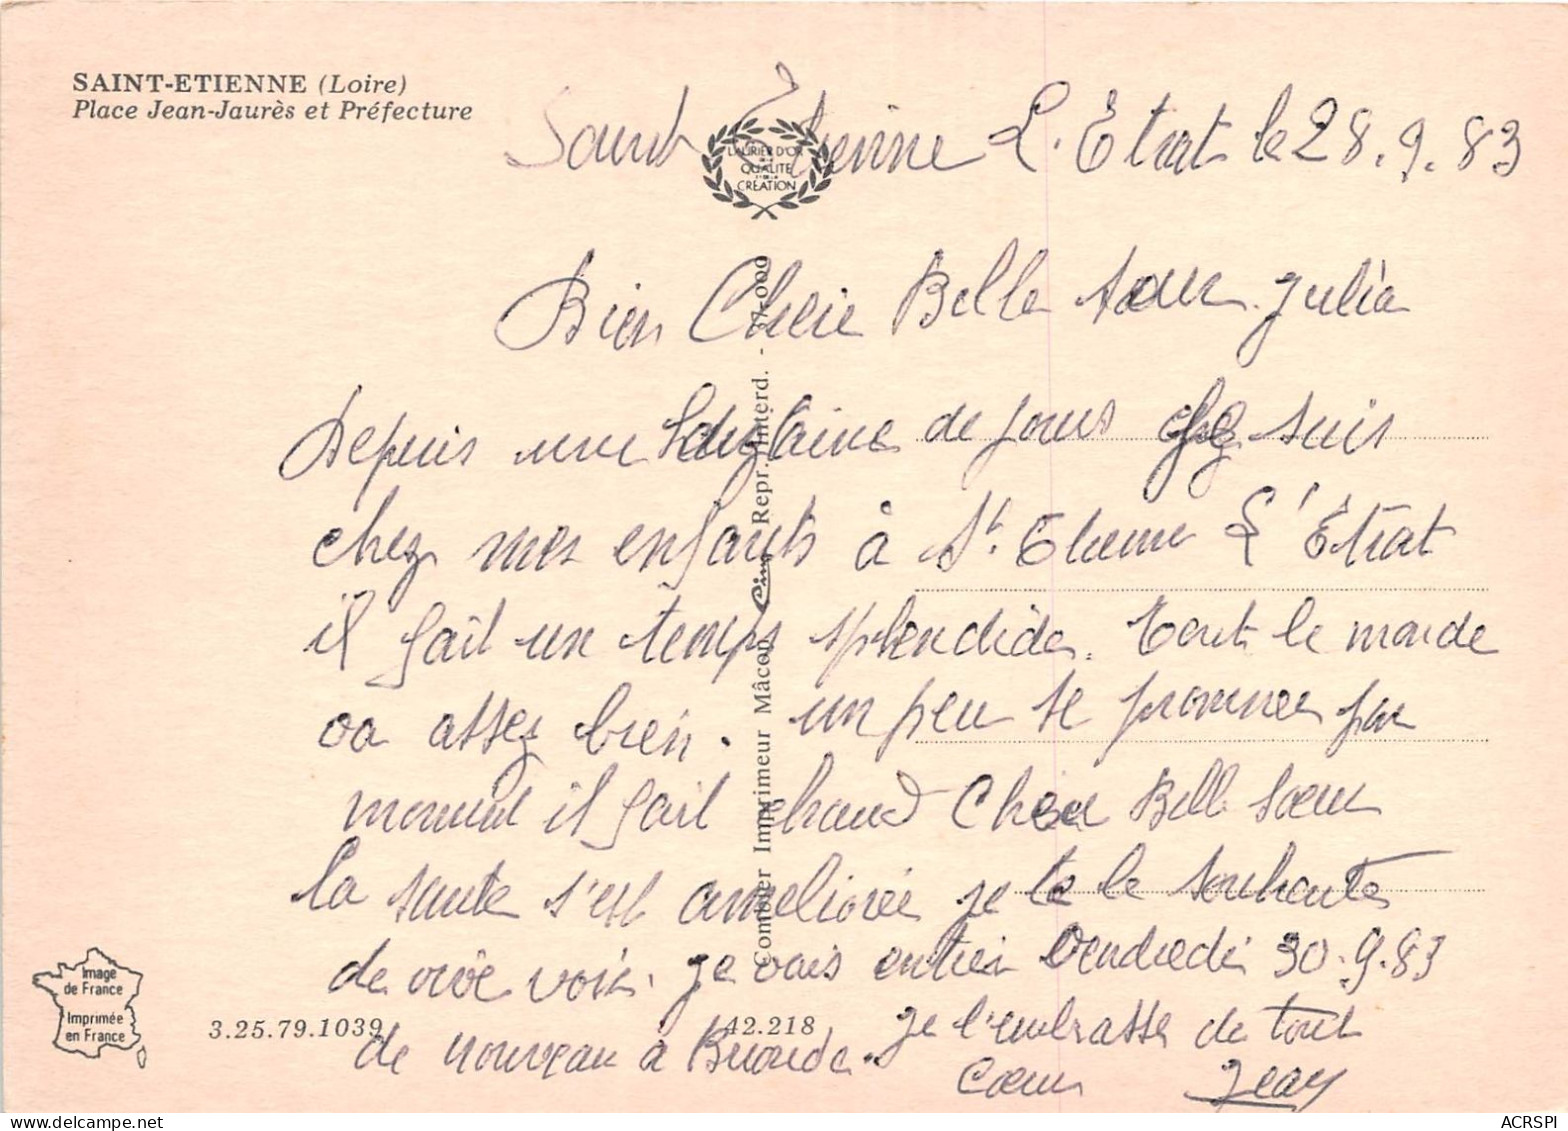 SAINT-ETIENNE (Loire)
Place Jean-Jaurès et Préfecture
Saint Etienne L'Etrat le 28.9.83
LAURIER D'OR
DE LA
QUALITÉ
ET DE LA
CRÉATION
Bien Cheie Belle sœur Julia
Depuis une de jours suis
chez mes enfants à St. Etienne L'Étrat
il fait un temps splendide. tout le monde
va assez bien. un peu se promener par
moment il fait chaud Chere Belle sœur
la sante s'est ameliorée je te le souhaite
de vive voix. je vais entrer Vendredi 30.9.83
de nouveau à Brioude. je t'embrasse de tout
cœur Jean
Combier Imprimeur Mâcon Cim Repr. Interd. - 37-000
Image
de France
Imprimée
en France
3.25.79.1039
42.218
www.delcampe.net
ACRSPI